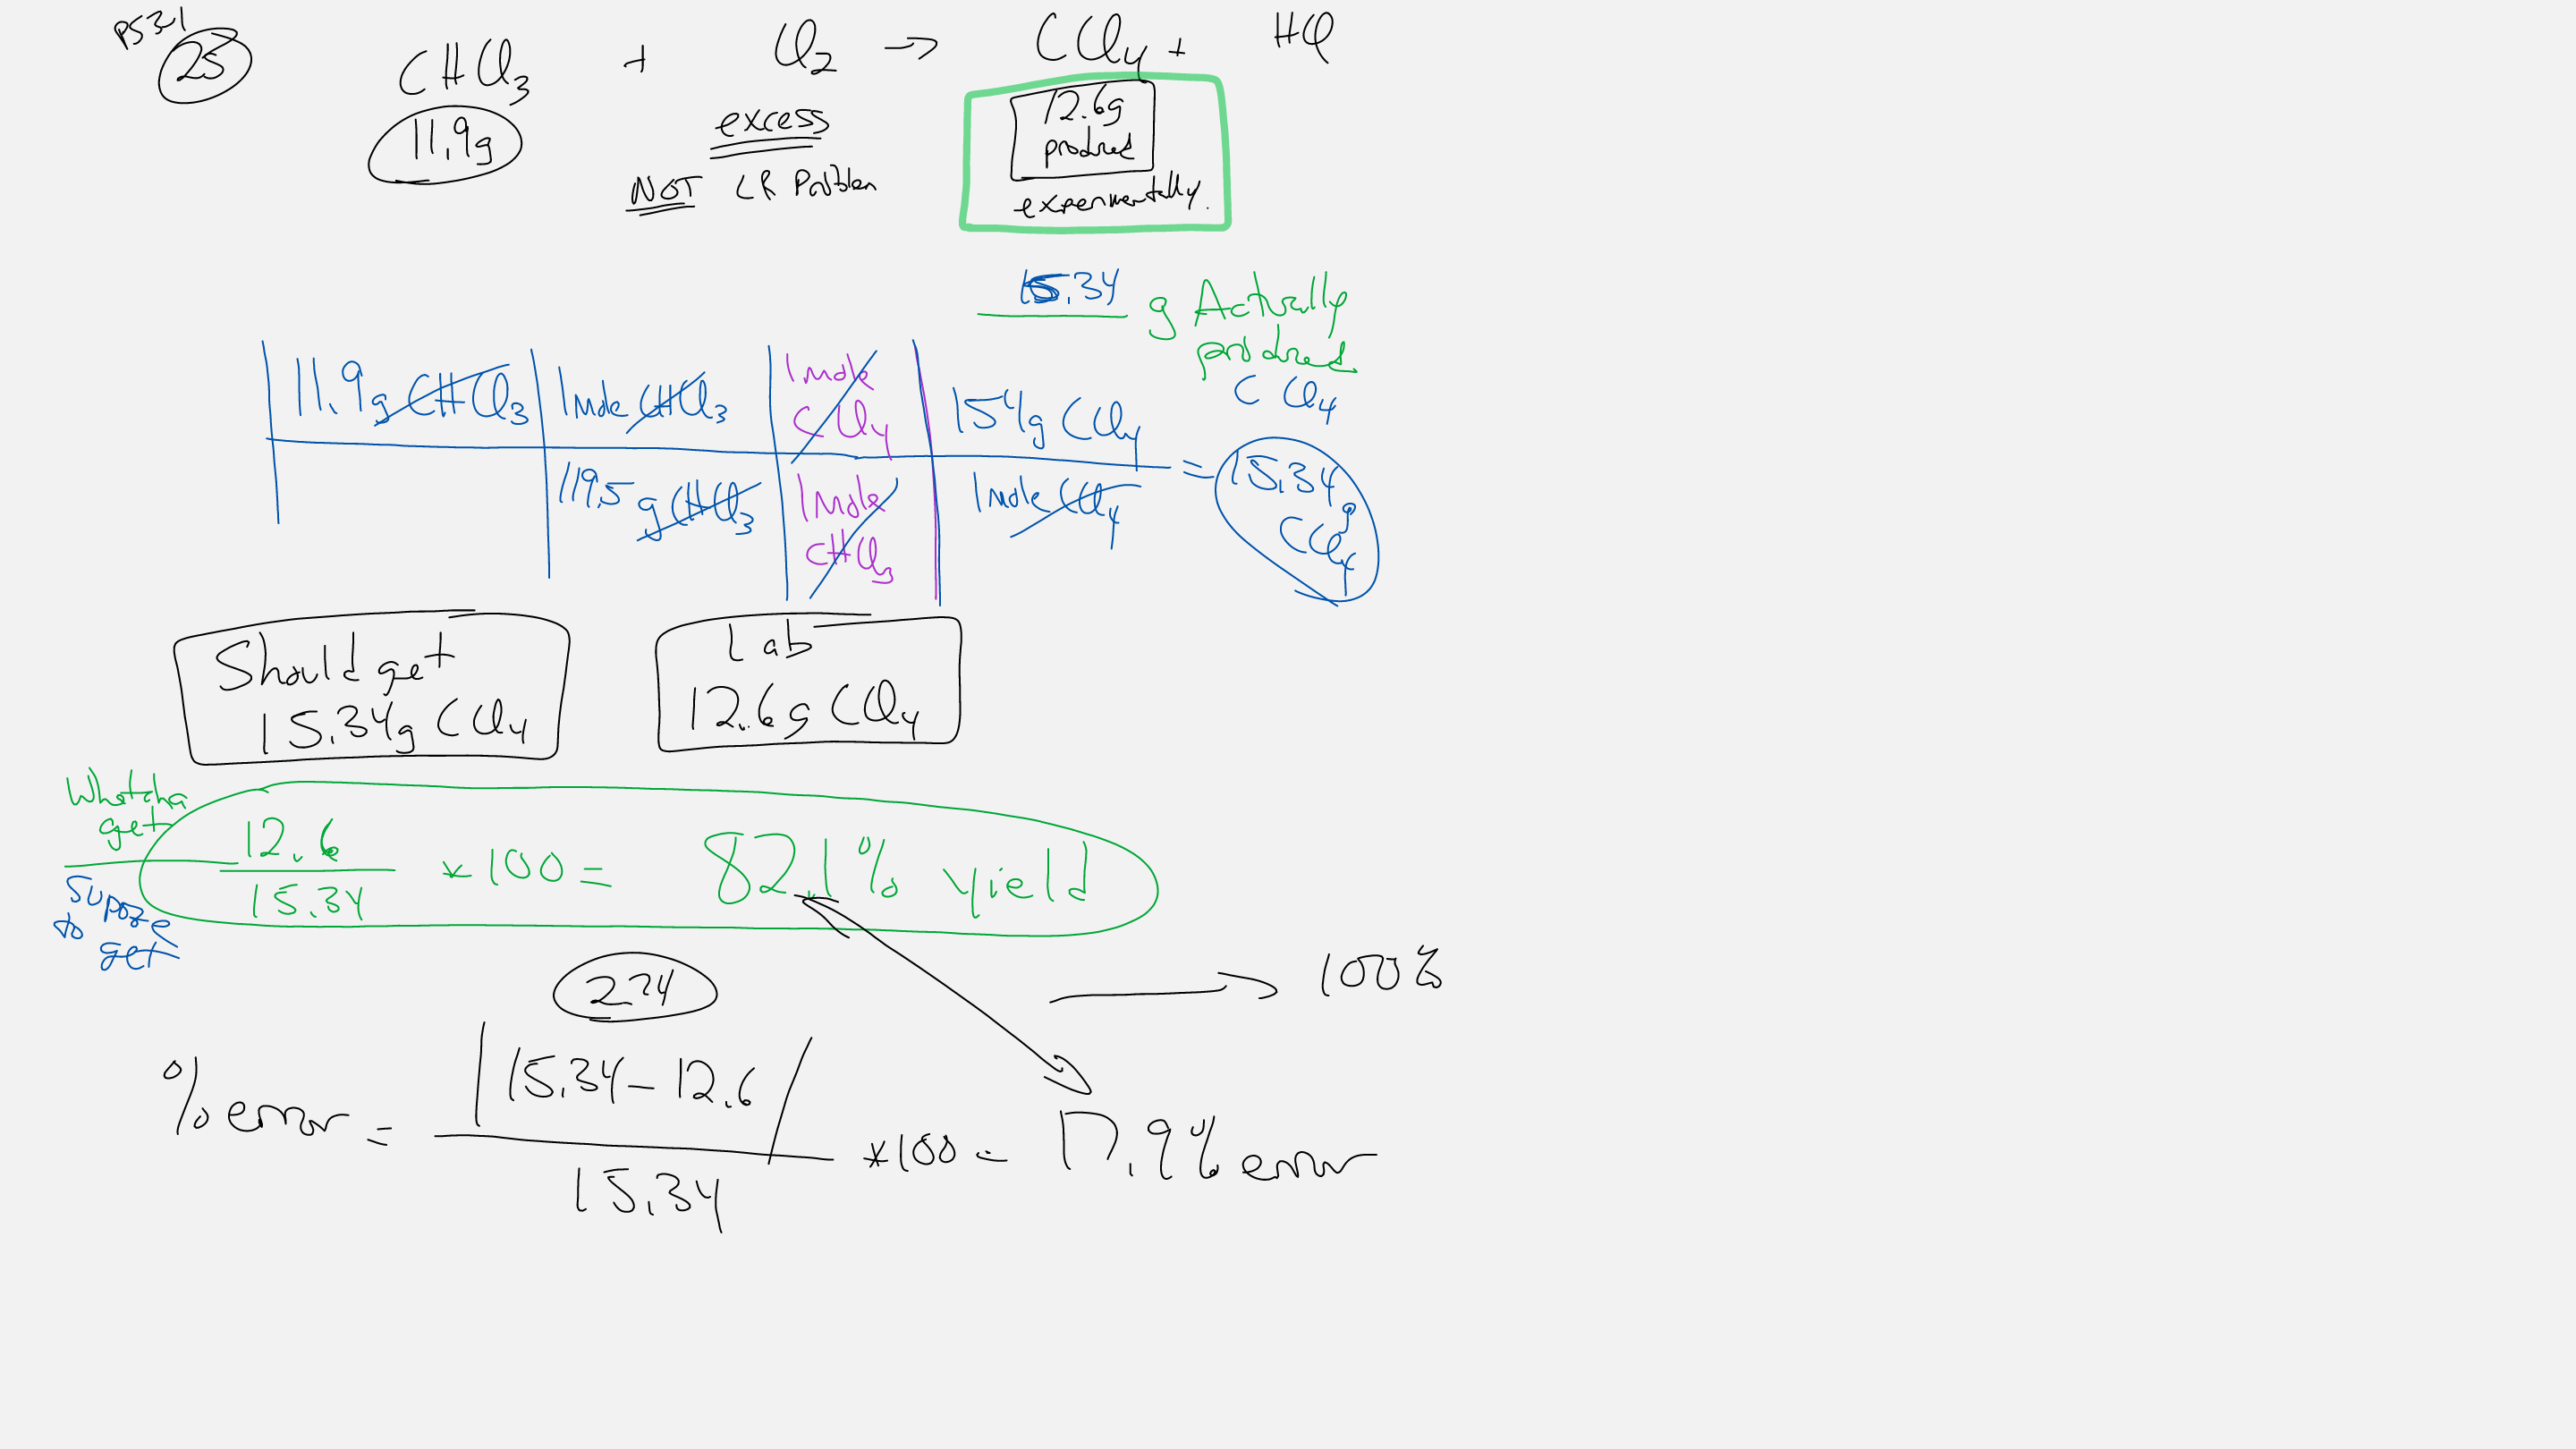 p531
25
CHCl3 + Cl2 → CCl4 + HCl
11.9g
excess
NOT LR Problem
12.6g
produced
experimentally.
15.34 g Actually
produced
CCl4
11.9g CHCl3 | 1mole CHCl3 | 1mole CCl4 | 154g CCl4
119.5 g CHCl3 | 1mole CHCl3 | 1mole CCl4
= 15.34g
CCl4
Should get
15.34g CCl4
Lab
12.6g CCl4
Whatcha
get
Supoze
to
get
12.6
15.34
*100 = 82.1% yield
2.74
→ 100%
%error = |15.34-12.6|
15.34
*100 = 17.9% error